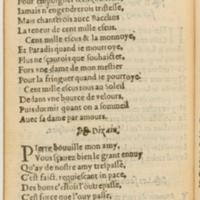 Iamais n'engendrerois tristesse,
Mais chanterois auec Bacchus
La teneur de cent mille escus.
Cent mille escus & la monnoye,
Et Paradis quand ie mourroye,
Plus ne sçaurois que souhaicter,
Fors vne dame de mon mestier
Pour la fringuer quand ie pourroye.
Cent mille escus tous au Soleil
Dedans vne bource de velours,
Puis dormir quant on a sommeil
Auec sa dame par amours.
Dixain.
Pierre bouille mon amy,
Vous sçauez bien le grant ennuy
Qu'ay de nostre amy trespassé,
C'est faict. requiescant in pace,
Des bons c'estoit l'outrepasse,
C'est force que l'ouy passe,